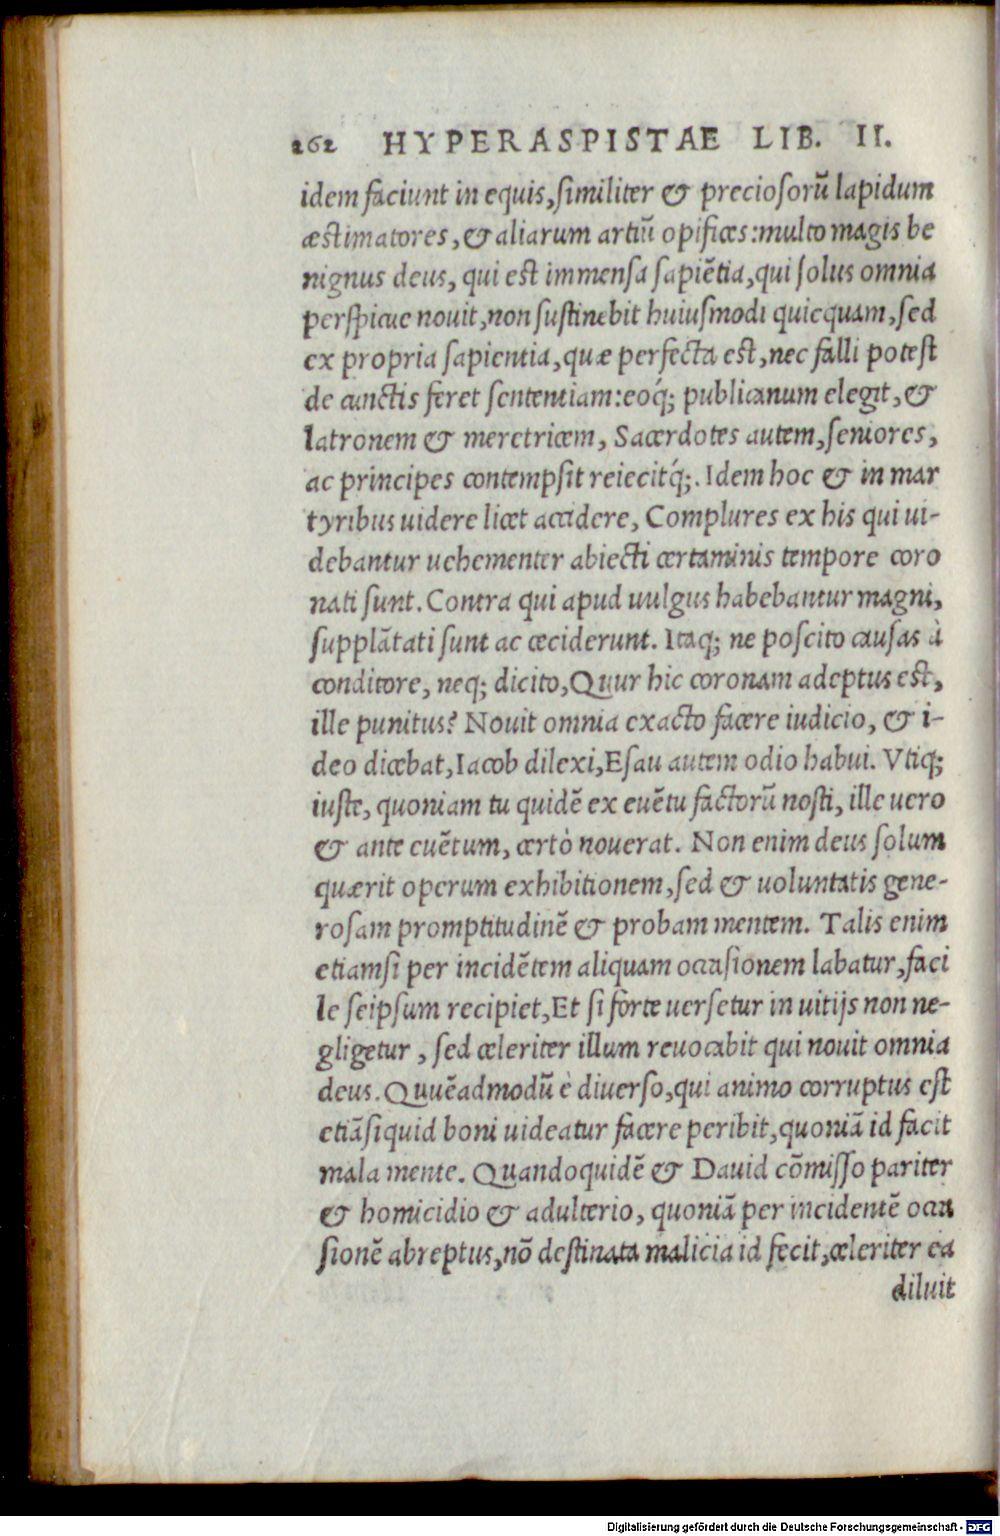 262 HYPERASPISTAE LIB. II.
idem faciunt in equis, ſimiliter & precioſorũ lapidum
æstimatores, & aliarum artiũ opifices: multo magis be
nignus deus, qui est immenſa ſapiẽtia, qui ſolus omnia
perſpicue nouit, non ſustinebit huiuſmodi quicquam, ſed
ex propria ſapientia, quæ perfecta est, nec falli potest
de cunctis feret ſententiam: eoq́; publicanum elegit, &
latronem & meretricem, Sacerdotes autem, ſeniores,
ac principes contempſit reiecitq́;. Idem hoc & in mar
tyribus uidere licet accidere, Complures ex his qui ui-
debantur uehementer abiecti certaminis tempore coro
nati ſunt. Contra qui apud uulgus habebantur magni,
ſupplãtati ſunt ac ceciderunt. Itaq; ne poſcito cauſas à
conditore, neq; dicito, Quur hic coronam adeptus est,
ille punitus? Nouit omnia exacto facere iudicio, & i-
deo dicebat, Iacob dilexi, Eſau autem odio habui. Vtiq;
iuſte, quoniam tu quidẽ ex euẽtu factorũ noſti, ille uero
& ante euẽtum, certò nouerat. Non enim deus ſolum
quærit operum exhibitionem, ſed & uoluntatis gene-
roſam promptitudinẽ & probam mentem. Talis enim
etiamſi per incidẽtem aliquam occaſionem labatur, faci
le ſeipſum recipiet, Et ſi forte uerſetur in uitijs non ne-
gligetur, ſed celeriter illum reuocabit qui nouit omnia
deus. Quuẽadmodũ è diuerſo, qui animo corruptus est
etiãſiquid boni uideatur facere peribit, quoniã id facit
mala mente. Quandoquidẽ & Dauid cõmiſſo pariter
& homicidio & adulterio, quoniã per incidentẽ occa
ſionẽ abreptus, nõ deſtinata malicia id fecit, celeriter ea
diluit
Digitalisierung gefördert durch die Deutsche Forschungsgemeinschaft - DFG